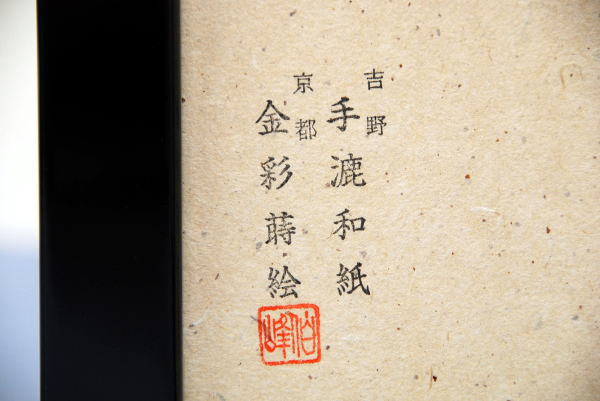 吉野
手漉和紙
京都
金彩蒔絵